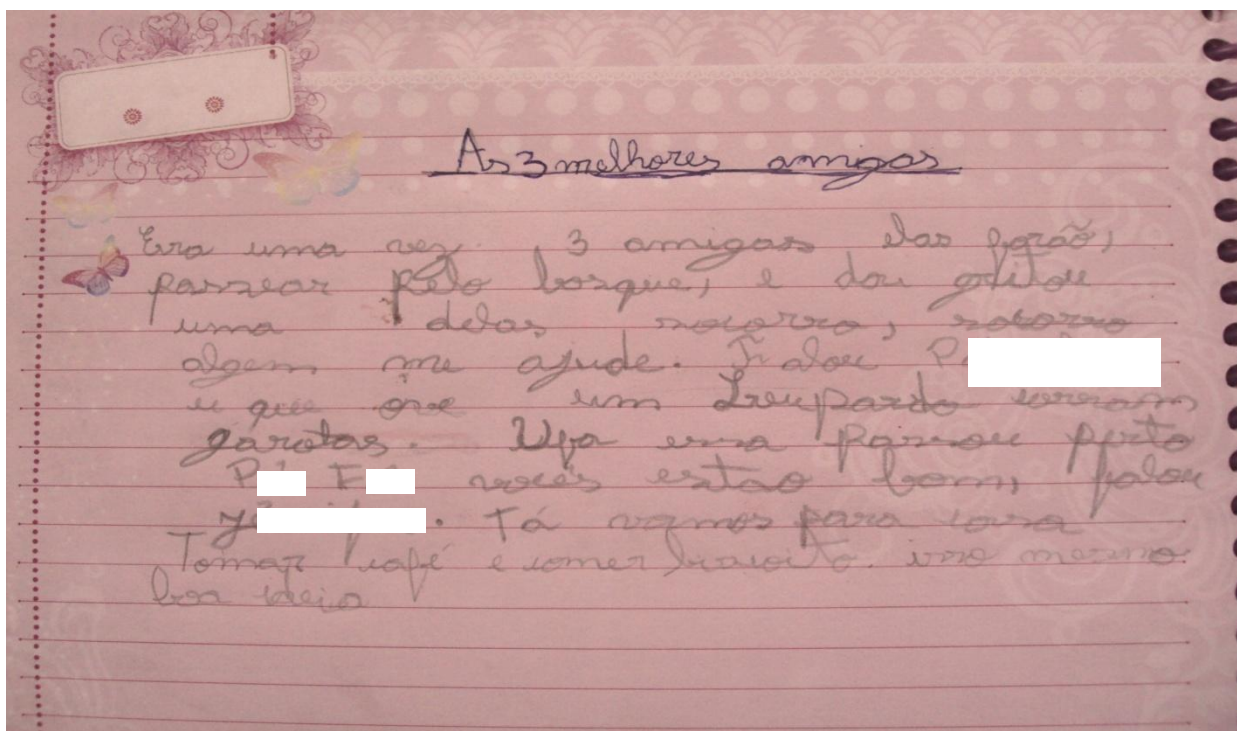 As 3 melhores amigas
Era uma vez 3 amigas elas forão,
passear pelo bosque, e dou gritou
uma delas socorro, socorro
algem me ajude. Falou P
u que ove um Leupardo correram
garotas. Ufa essa passou perto
P E vocês estao bom, falou
y . Tá vamos para casa
Tomar café e comer biscoito. isso mesmo
boa ideia